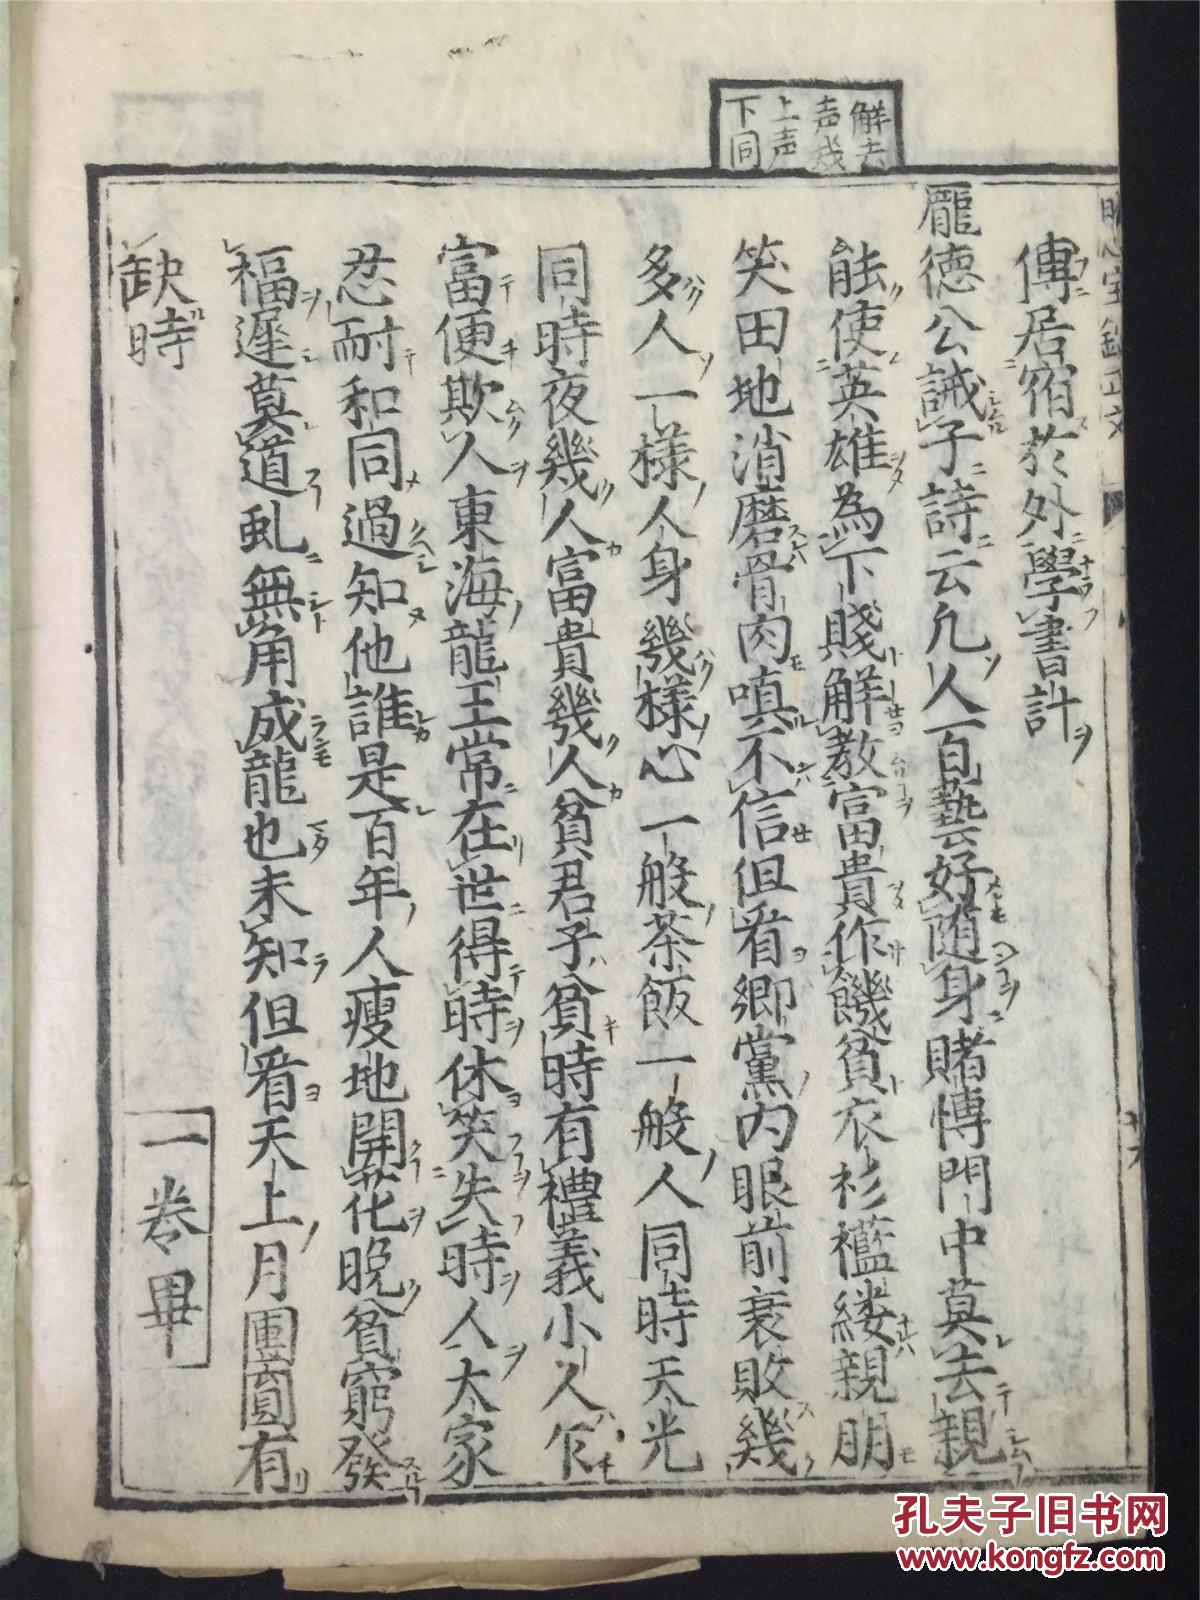 解去
声幾
上声
下同
傳居宿於外學書計
龐德公誡子詩云凡人百藝好随身賭愽門中莫去親
能使英雄為下賤解教富貴作饑貧衣衫襤縷親朋
笑田地消磨骨肉嗔不信但看鄉黨內眼前衰敗幾
多人一樣人身幾樣心一般茶飯一般人同時天光
同時夜幾人富貴幾人貧君子貧時有禮義小人乍
富便欺人東海龍王常在世得時休笑失時人大家
忍耐和同過知他誰是百年人瘦地開花晚貧窮發
福遲莫道虬無角成龍也未知但看天上月團圓有
缺時
一卷畢
孔夫子旧书网
www.kongfz.com